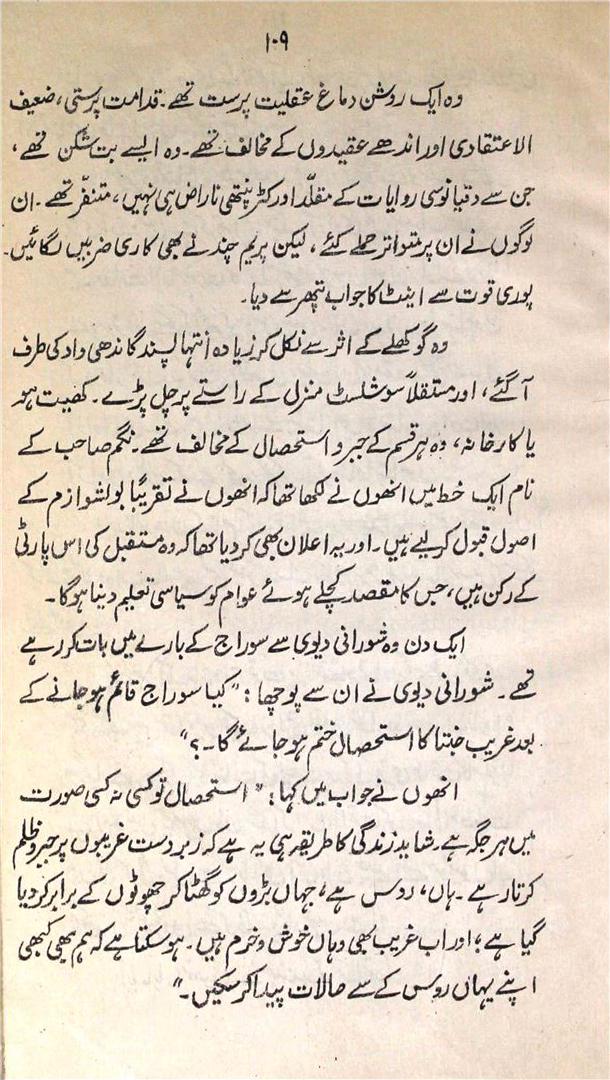 ۱۰۹
وہ ایک روشن دماغ عقلیت پرست تھے۔ قدامت پرستی، ضعیف
الاعتقادی اور اندھے عقیدوں کے مخالف تھے۔ وہ ایسے بت شکن تھے،
جن سے دقیانوسی روایات کے مقلّد اور کٹر پنتھی ناراض ہی نہیں، متنفّر تھے۔ ان
لوگوں نے ان پر متواتر حملے کئے، لیکن پریم چند نے بھی کاری ضربیں لگائیں۔
پوری قوت سے اینٹ کا جواب پتھر سے دیا۔
وہ گوکھلے کے اثر سے نکل کر زیادہ انتہا پسند گاندھی واد کی طرف
آ گئے، اور مستقلاً سوشلسٹ منزل کے راستے پر چل پڑے۔ کھیت ہو
یا کارخانہ، وہ ہر قسم کے جبر و استحصال کے مخالف تھے۔ نگم صاحب کے
نام ایک خط میں انھوں نے لکھا تھا کہ انھوں نے تقریباً بولشوازم کے
اصول قبول کر لیے ہیں۔ اور یہ اعلان بھی کر دیا تھا کہ وہ مستقبل کی اس پارٹی
کے رکن ہیں، جس کا مقصد کچلے ہوئے عوام کو سیاسی تعلیم دینا ہوگا۔
ایک دن وہ شورانی دیوی سے سوراج کے بارے میں بات کر رہے
تھے۔ شورانی دیوی نے ان سے پوچھا: "کیا سوراج قائم ہو جانے کے
بعد غریب جنتا کا استحصال ختم ہو جائے گا۔؟"
انھوں نے جواب میں کہا: "استحصال تو کسی نہ کسی صورت
میں ہر جگہ ہے۔ شاید زندگی کا طریقہ ہی یہ ہے کہ زبردست غریبوں پر جبر و ظلم
کرتا رہے۔ ہاں، روس ہے، جہاں بڑوں کو گھٹا کر چھوٹوں کے برابر کر دیا
گیا ہے؛ اور اب غریب بھی وہاں خوش و خرم ہیں۔ ہو سکتا ہے کہ ہم بھی کبھی
اپنے یہاں روس کے سے حالات پیدا کر سکیں۔"